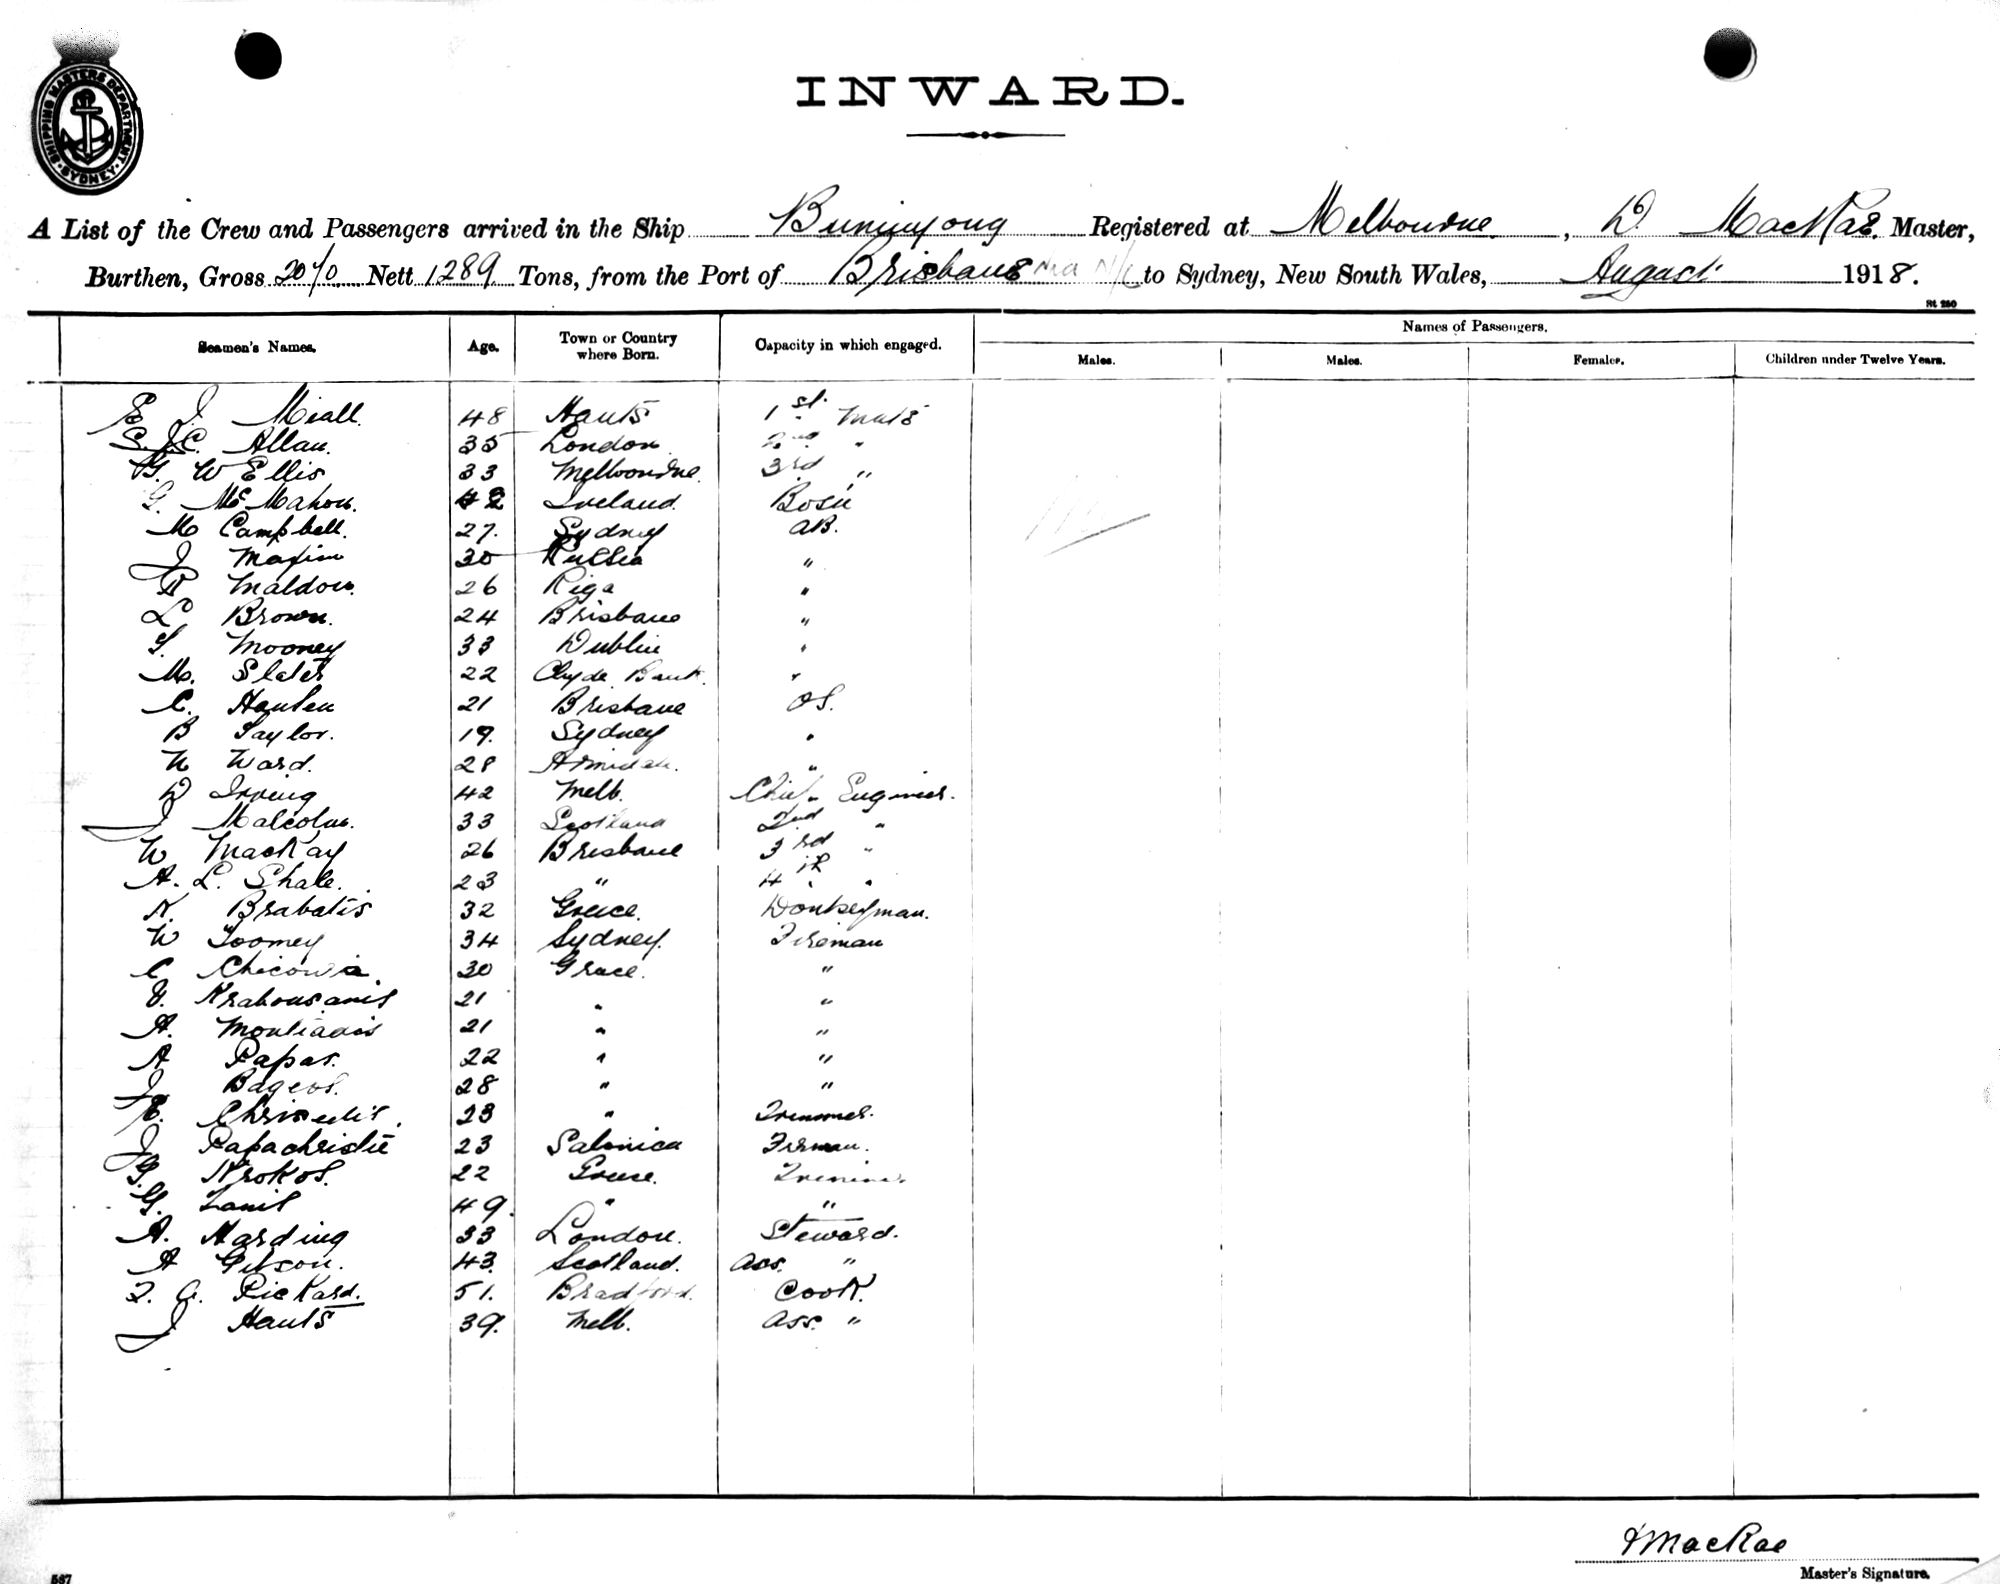 SHIPPING MASTERS DEPARTMENT
SYDNEY
INWARD.
A List of the Crew and Passengers arrived in the Ship Buninyong Registered at Melbourne, D. MacRae. Master,
Burthen, Gross 2070 Nett 1289 Tons, from the Port of Brisbane via N/C to Sydney, New South Wales, August 1918.
St 260
Seamen's Names. Age. Town or Country where Born. Capacity in which engaged. Names of Passengers.
Males. Males. Females. Children under Twelve Years.
E J. Miall 48 Hants 1st. Mate
S. J. C. Allan. 35 London 2nd "
G. W Ellis 33 Melbourne. 3rd "
G. McMahon. 42 Ireland. Bosn
M Campbell. 27. Sydney AB.
J Maxim 30 Russia "
R Maldon. 26 Riga "
L Brown. 24 Brisbane "
S. Mooney 33 Dublin "
M. Slater 22 Clyde Bank. "
C. Hansen 21 Brisbane OS.
B Taylor. 19. Sydney "
W Ward. 28 Armidale. "
D Irving 42 Melb. Chief Engineer.
J Malcolm. 33 Scotland 2nd "
W MacKay 26 Brisbane 3rd "
A. L. Shale. 23 " 4th "
K. Brabatis 32 Greece. Donkeyman.
W Toomey 34 Sydney. Fireman
C 30 Greece. "
21 " "
A. 21 " "
A Papas. 22 " "
J. 28 " "
E. 23 " Trimmer.
J. Papachristie 23 Salonica Firman.
G. Krokos. 22 Greece. Trimmer
G. Zanis 49. " "
A. Harding 33 London. Steward.
A Gibson. 43. Scotland. Ass. "
F. G. Rickard. 51. Bradford. Cook.
J Hants 39. Melb. Ass. "
DMacRae
Master's Signature.
567